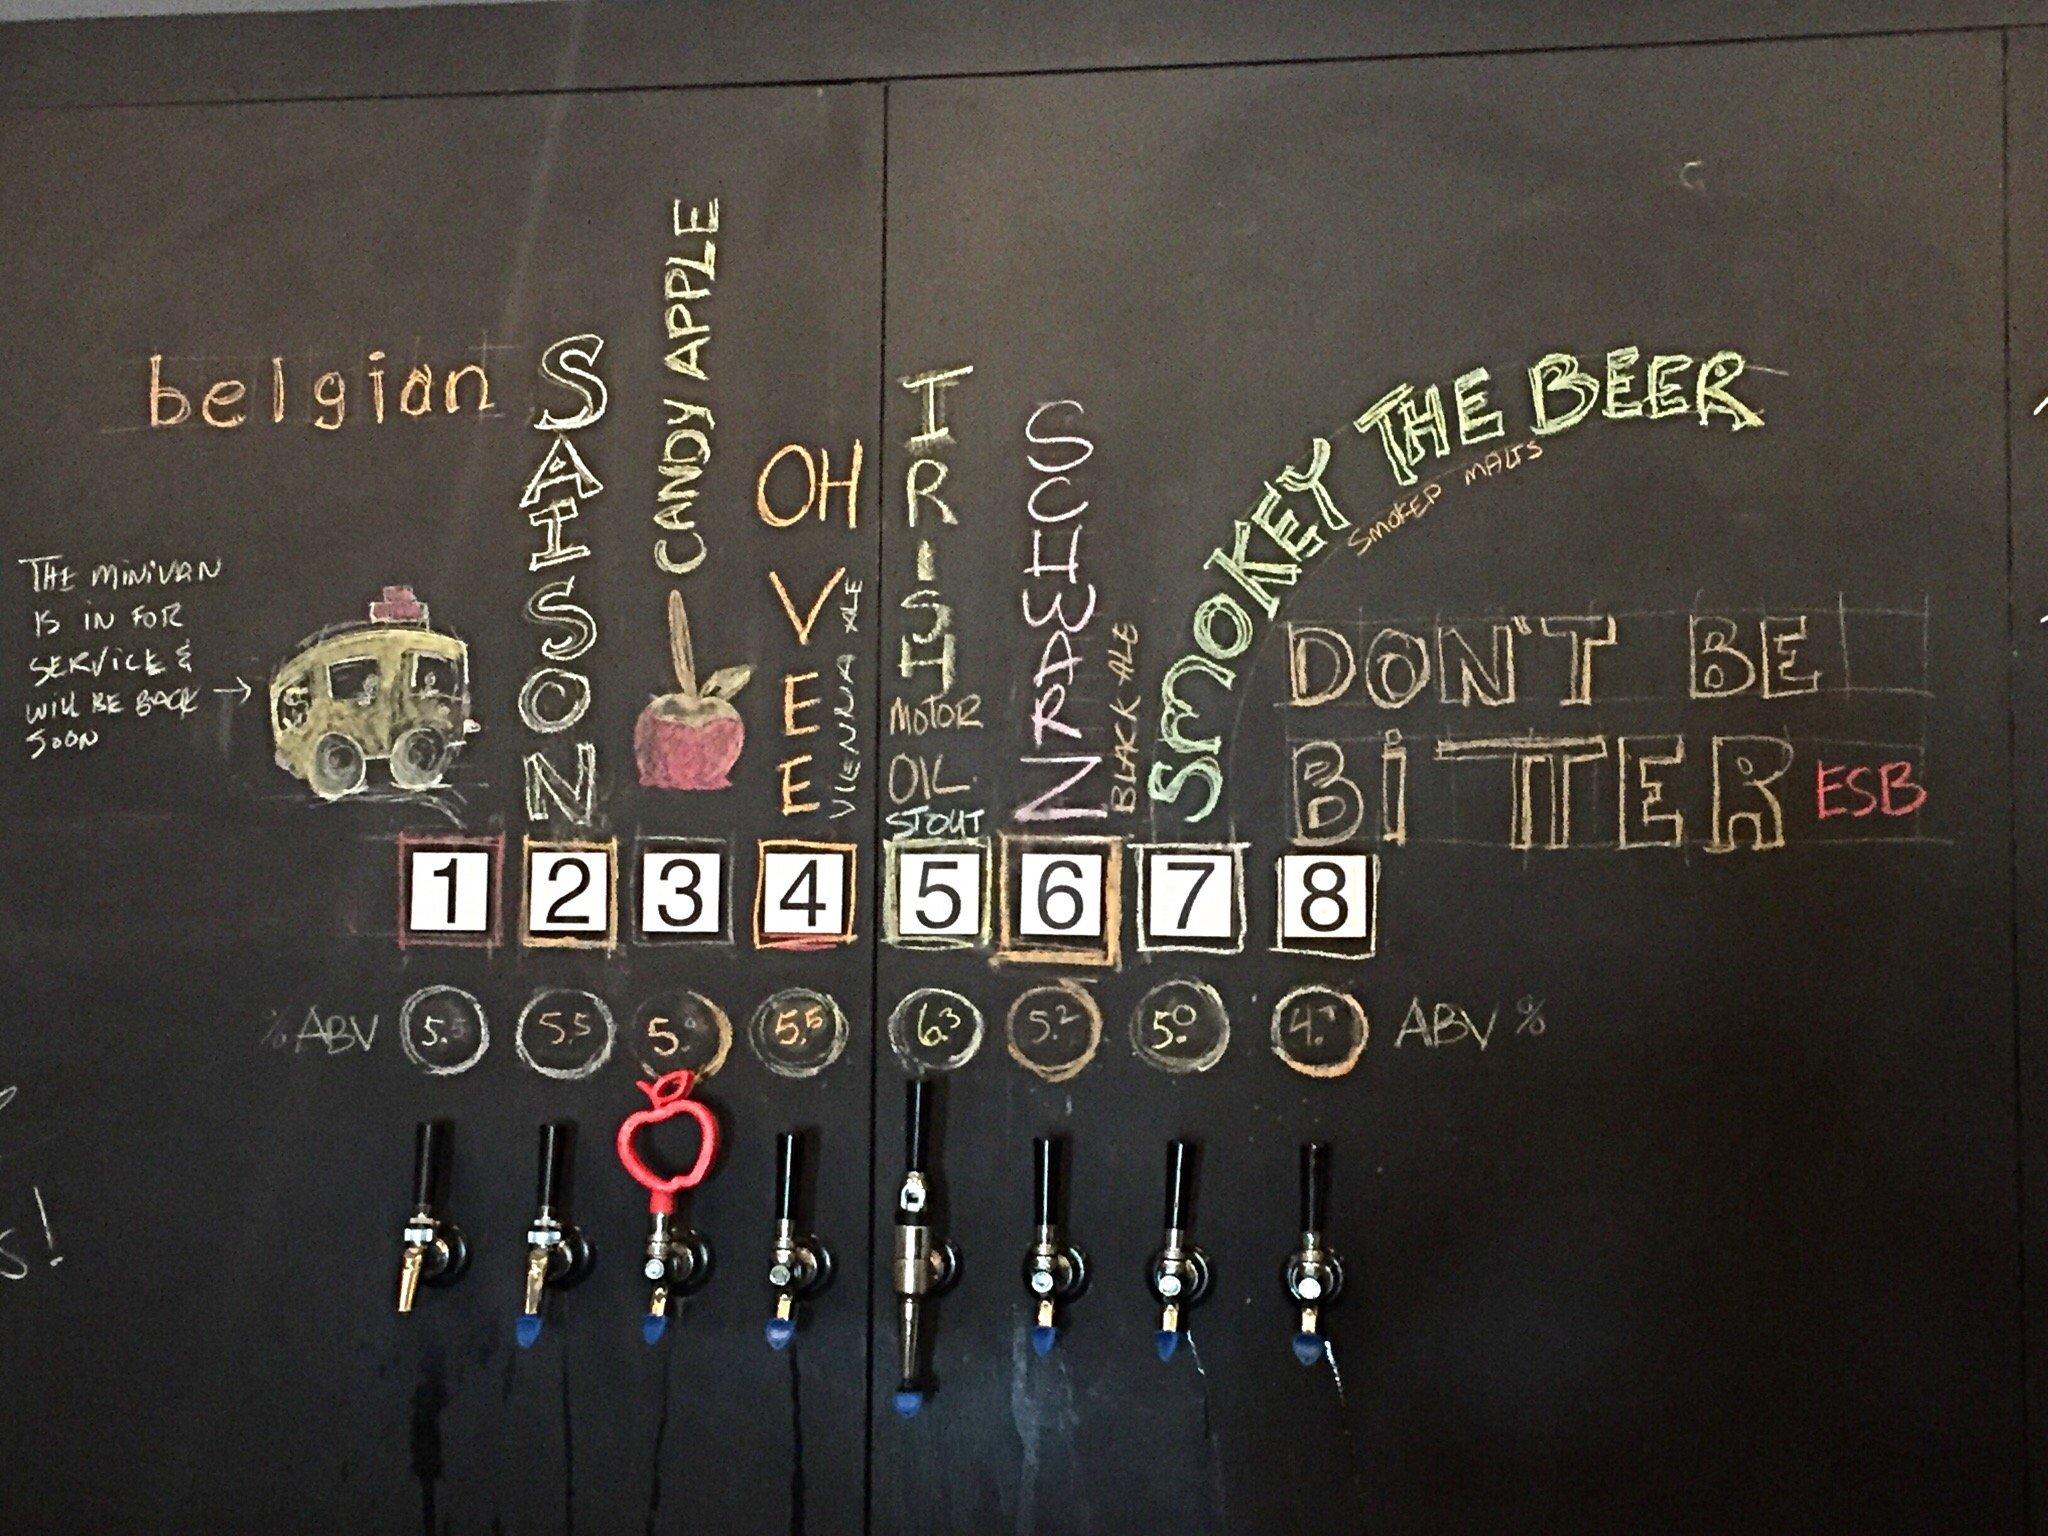 belgian
SAISON
CANDY APPLE
OH
VEE
VIENNA ALE
IRISH
MOTOR
OIL
STOUT
SCHWARZ
BLACK ALE
SMOKEY THE BEER
SMOKED MALTS
DON'T BE
BITTER ESB
THE MINIVAN
IS IN FOR
SERVICE &
WILL BE BACK →
SOON
1 2 3 4 5 6 7 8
% ABV 5.5 5.5 5.0 5.5 6.3 5.2 5.0 ABV %